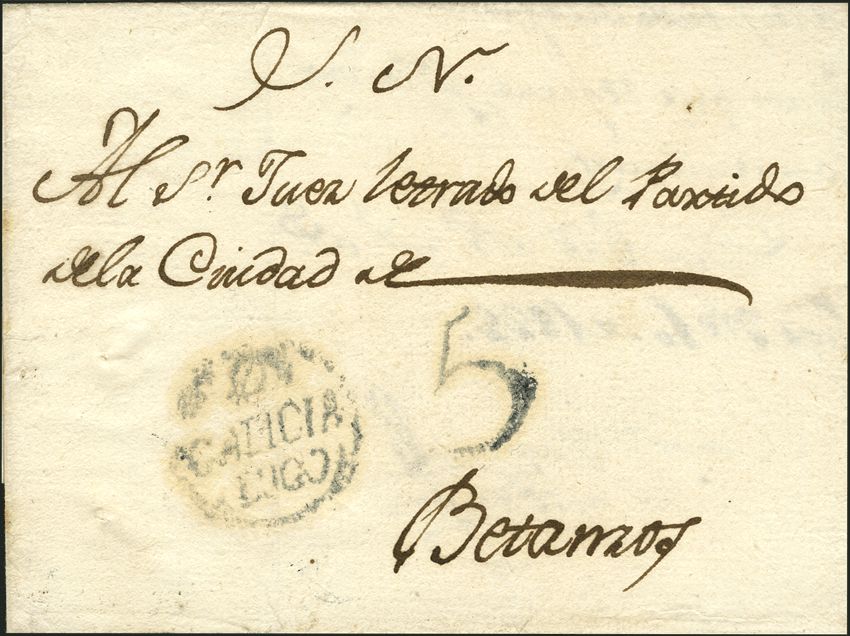 S. N.
Al Sr. Juez letrado del Partido
de la Ciudad de
5
GALICIA
LUGO
Betanzos